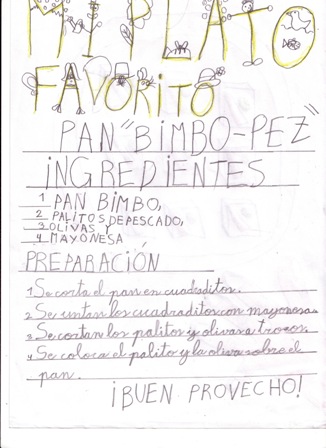 MI PLATO
FAVORITO
PAN "BIMBO-PEZ"
iNGREDIENTES
1 PAN BiMBO,
2 PALITOS DE PESCADO,
3 OLIVAS Y
4 MAYONESA
PREPARACIÓN
1 Se corta el pan en cuadraditos.
2 Se untan los cuadraditos con mayonesa.
3 Se cortan los palitos y olivas a trozos.
4 Se coloca el palito y la oliva sobre el
pan.
¡BUEN PROVECHO!